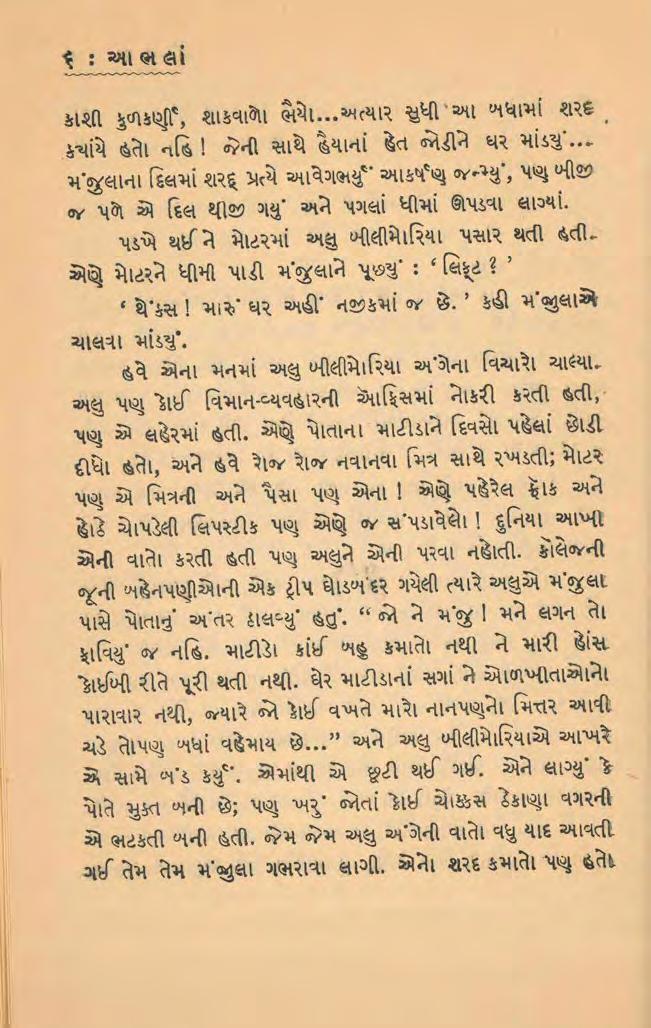 ૬ : આભલાં
કાશી કુળકર્ણી, શાકવાળો ભૈયો...અત્યાર સુધી આ બધામાં શરદ
કયાંયે હતો નહિ! જેની સાથે હૈયાનાં હેત જોડીને ઘર માંડયું...
મંજુલાના દિલમાં શરદ્ પ્રત્યે આવેગભર્યું આકર્ષણ જન્મ્યું, પણ બીજી
જ પળે એ દિલ થીજી ગયું અને પગલાં ધીમાં ઊપડવા લાગ્યાં.
પડખે થઈ ને મોટરમાં અલુ બીલીમોરિયા પસાર થતી હતી.
એણે મોટરને ધીમી પાડી મંજુલાને પૂછયું : ‘લિફ્ટ ? ’
‘ થેંકસ! મારું ઘર અહીં નજીકમાં જ છે. ’ કહી મંજુલાએ
ચાલવા માંડયું.
હવે એના મનમાં અલુ બીલીમોરિયા અંગેના વિચારો ચાલ્યા.
અલુ પણ કોઈ વિમાન-વ્યવહારની ઑફિસમાં નોકરી કરતી હતી,
પણ એ લહેરમાં હતી. એણે પોતાના માટીડાને દિવસો પહેલાં છોડી
દીધો હતો, અને હવે રોજ રોજ નવાનવા મિત્ર સાથે રખડતી; મોટર
પણ એ મિત્રની અને પૈસા પણ એના! એણે પહેરેલ ફ્રૉક અને
હોઠે ચોપડેલી લિપસ્ટીક પણ એણે જ સંપડાવેલો! દુનિયા આખી
એની વાતો કરતી હતી પણ અલુને એની પરવા નહોતી. કૉલેજની
જૂની બહેનપણીઓની એક ટ્રીપ ઘોડબંદર ગયેલી ત્યારે અલુએ મંજુલા
પાસે પોતાનું અંતર ઠાલવ્યું હતું. “જો ને મંજુ! મને લગન તો
ફાવિયું જ નહિ. માટીડો કાંઈ બહુ કમાતો નથી ને મારી હોંસ
કોઈબી રીતે પૂરી થતી નથી. ઘેર માટીડાનાં સગાં ને ઓળખીતાઓનો
પારાવાર નથી, જ્યારે જો કોઈ વખતે મારો નાનપણનો મિત્તર આવી
ચડે તોપણ બધાં વહેમાય છે...” અને અલુ બીલીમોરિયાએ આખરે
એ સામે બંડ કર્યું. એમાંથી એ છૂટી થઈ ગઈ. એને લાગ્યું કે
પોતે મુક્ત બની છે; પણ ખરું જોતાં કોઈ ચોક્કસ ઠેકાણા વગરની
એ ભટકતી બની હતી. જેમ જેમ અલુ અંગેની વાતો વધુ યાદ આવતી
ગઈ તેમ તેમ મંજુલા ગભરાવા લાગી. એનો શરદ કમાતો પણ હતો